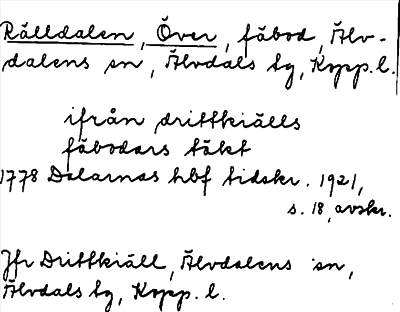 Rälldalen, Över, fäbod, Älv-
dalens sn, Älvdals tg, Kopp. l.
ifrån drittkiälls
fäbodars täkt
1778 Dalarnas hbf tidskr. 1921,
s. 18, avskr.
Jfr Drittkiäll, Älvdalens sn,
Älvdals tg, Kopp. l.